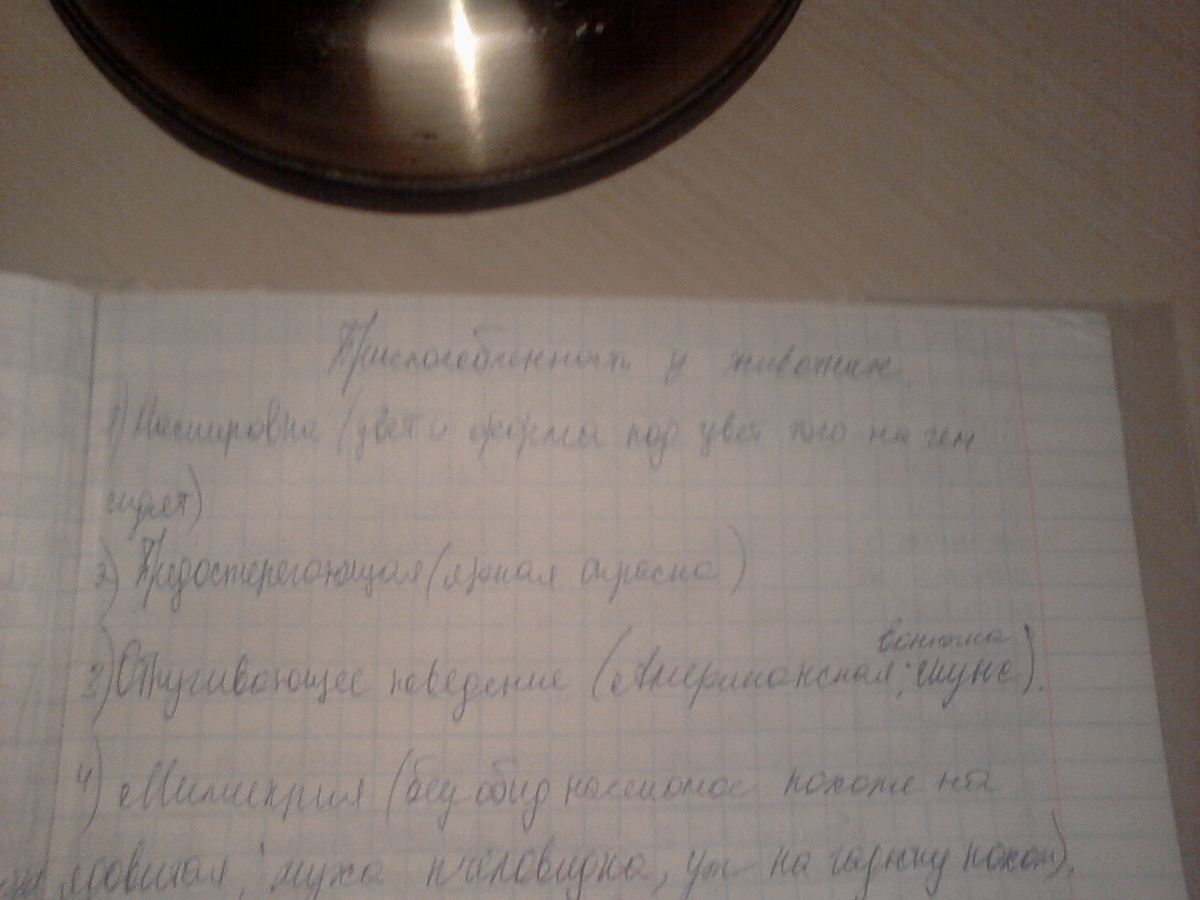 Приспособленность у животных.
1) Маскировка (цвет и форма под цвет того на чем
сидят)
2) Предостерегающая (яркая окраска)
вонючка
3) Отпугивающее поведение (Американская, скунс).
4) Мимикрия (безобид насекомое похоже на
ядовитая, муха пчеловидка, уж на гадюку похож).